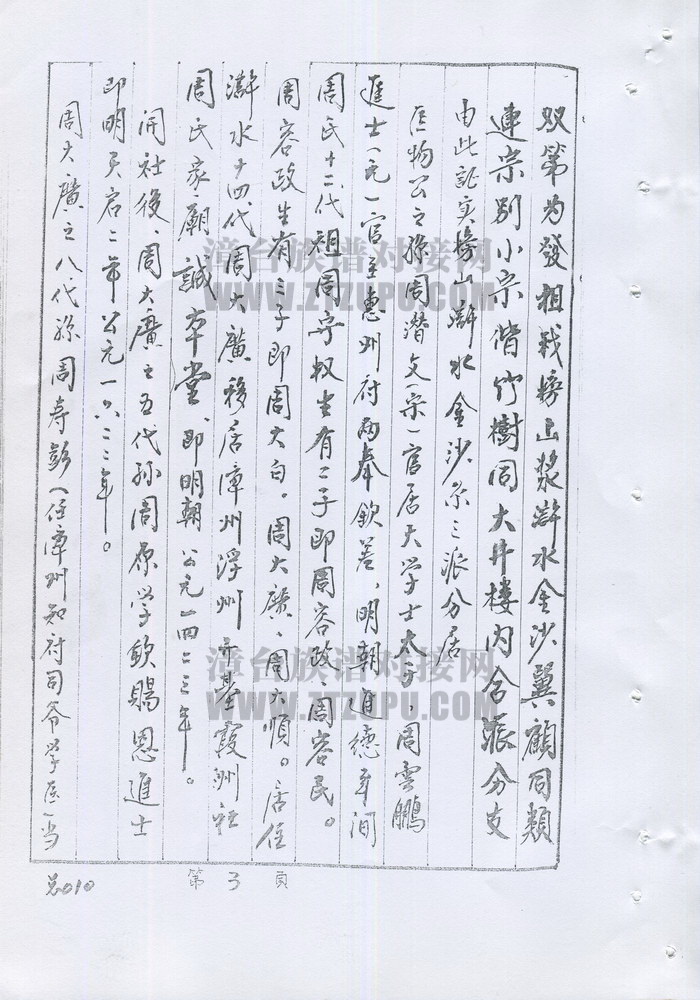 双第为發祖我榜山浆浒水金沙翼顧同類
連宗别小宗偕竹樹同大井樓内合派分支
由此証实榜山浒水金沙系三派分居
匡物公之孫周潜文(宋)官居大学士太子,周雲鵬
進士(元)官至惠州府两奉欽差,明朝道德年间
周氏十二代祖周守奴生有二子即周容政、周容民。
周容政生有三子即周大白。周大廣、周大順。居住
浒水十四代周大廣移居漳州浮州开基霞洲社
周氏家廟誠本堂、即明朝公元一四二三年。
開社後、周大廣之五代孙周原学欽賜恩進士
即明天启二年公元一六二二年。
周大廣之八代孫周寿彭(任漳州知府司爷学医)当
第 3 頁
总010
漳台族谱对接网
WWW.ZTZUPU.COM
漳台族谱对接网
WWW.ZTZUPU.COM